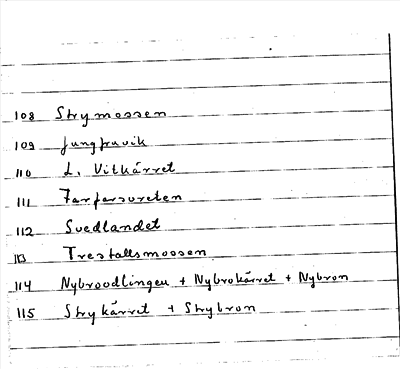 108 Strymossen
109 Jungfruvik
110 L. Vitkärret
111 Farfarsveten
112 Svedlandet
113 Trestallsmossen
114 Nybroodlingen + Nybrokärret + Nybron
115 Strykärret + Strybron